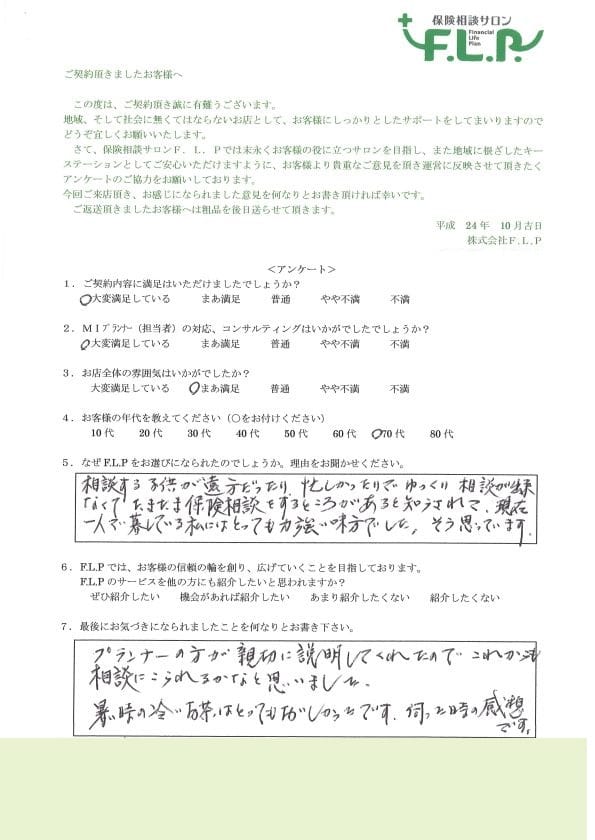 保険相談サロン
F.L.P.
Financial
Life
Plan
ご契約頂きましたお客様へ
この度は、ご契約頂き誠に有難うございます。
地域、そして社会に無くてはならないお店として、お客様にしっかりとしたサポートをしてまいりますので
どうぞ宜しくお願いいたします。
さて、保険相談サロンF．L．Pでは末永くお客様の役に立つサロンを目指し、また地域に根ざしたキー
ステーションとしてご安心いただけますように、お客様より貴重なご意見を頂き運営に反映させて頂きたく
アンケートのご協力をお願いしております。
今回ご来店頂き、お感じになられました意見を何なりとお書き頂ければ幸いです。
ご返送頂きましたお客様へは粗品を後日送らせて頂きます。
平成 24年 10月吉日
株式会社F.L.P
＜アンケート＞
1．ご契約内容に満足はいただけましたでしょうか？
○大変満足している まあ満足 普通 やや不満 不満
2．MIプランナー（担当者）の対応、コンサルティングはいかがでしたでしょうか？
○大変満足している まあ満足 普通 やや不満 不満
3．お店全体の雰囲気はいかがでしたか？
大変満足している ○まあ満足 普通 やや不満 不満
4．お客様の年代を教えてください（○をお付けください）
10代 20代 30代 40代 50代 60代 ○70代 80代
5．なぜF.L.Pをお選びになられたのでしょうか。理由をお聞かせください。
相談する子供が遠方だったり、忙しかったりでゆっくり相談が出来
なくてたまたま保険相談をするところがあると知らされて、現在
一人で暮している私にはとっても力強い味方でした。そう思っています。
6．F.L.Pでは、お客様の信頼の輪を創り、広げていくことを目指しております。
F.L.Pのサービスを他の方にも紹介したいと思われますか？
ぜひ紹介したい 機会があれば紹介したい あまり紹介したくない 紹介したくない
7．最後にお気づきになられましたことを何なりとお書き下さい。
プランナーの方が親切に説明してくれたのでこれからも
相談にこられるかなと思いました。
暑い時の冷いお茶はとってもおいしかったです。伺った時の感想
です。